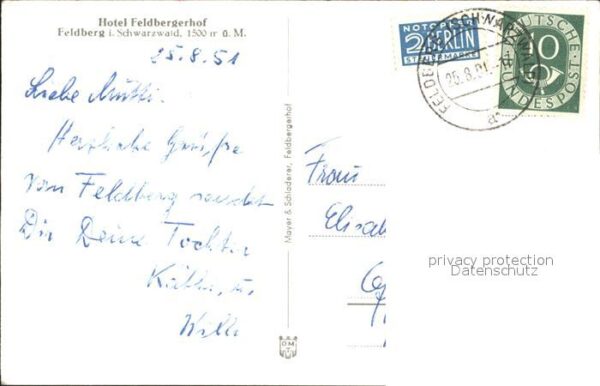 Hotel Feldbergerhof
Feldberg i. Schwarzwald, 1500 m ü. M.
25.8.51
Liebe Mutti.
Herzliche Grüsse
von Feldberg sendet
Dir Deine Tochter
Käthe, u.
Willi
Mayer & Schladerer, Feldbergerhof
NOTOPFER
2 BERLIN
STEUERMARKE
25.8.51
DEUTSCHE
10
BUNDESPOST
Frau
privacy protection
Datenschutz